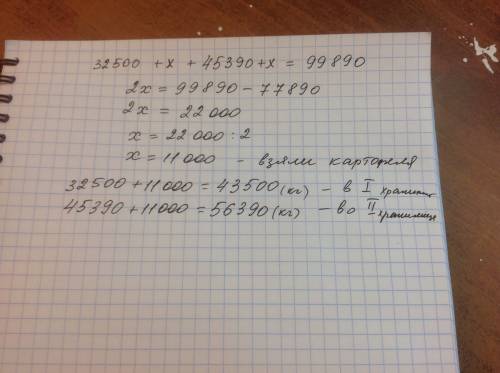 32500 + x + 45390 + x = 99890
2x = 99890 - 77890
2x = 22000
x = 22000 : 2
x = 11000 - взяли картофеля
32500 + 11000 = 43500 (кг) - в I
45390 + 11000 = 56390 (кг) - во II